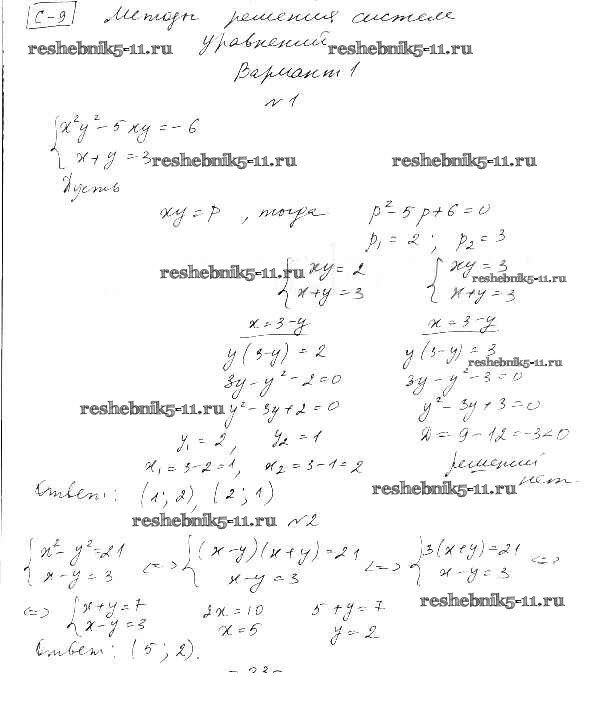 С-9 Методы решения систем
reshebnik5-11.ru уравнений reshebnik5-11.ru
Вариант 1
№1
{x²y² - 5xy = -6
x + y = 3 reshebnik5-11.ru reshebnik5-11.ru
Пусть
xy = p, тогда p² - 5p + 6 = 0
p₁ = 2; p₂ = 3
reshebnik5-11.ru {xy = 2 {xy = 3 reshebnik5-11.ru
x + y = 3 x + y = 3
x = 3 - y x = 3 - y
y(3 - y) = 2 y(3 - y) = 3
reshebnik5-11.ru
3y - y² - 2 = 0 3y - y² - 3 = 0
reshebnik5-11.ru y² - 3y + 2 = 0 y² - 3y + 3 = 0
y₁ = 2, y₂ = 1 D = 9 - 12 = -3 < 0
x₁ = 3 - 2 = 1, x₂ = 3 - 1 = 2 решений
нет.
Ответ: (1; 2), (2; 1) reshebnik5-11.ru
reshebnik5-11.ru №2
{x² - y² = 21 <=> {(x - y)(x + y) = 21 <=> {3(x + y) = 21 <=>
x - y = 3 x - y = 3 x - y = 3
reshebnik5-11.ru
<=> {x + y = 7 2x = 10 5 + y = 7
x - y = 3 x = 5 y = 2
Ответ: (5; 2).